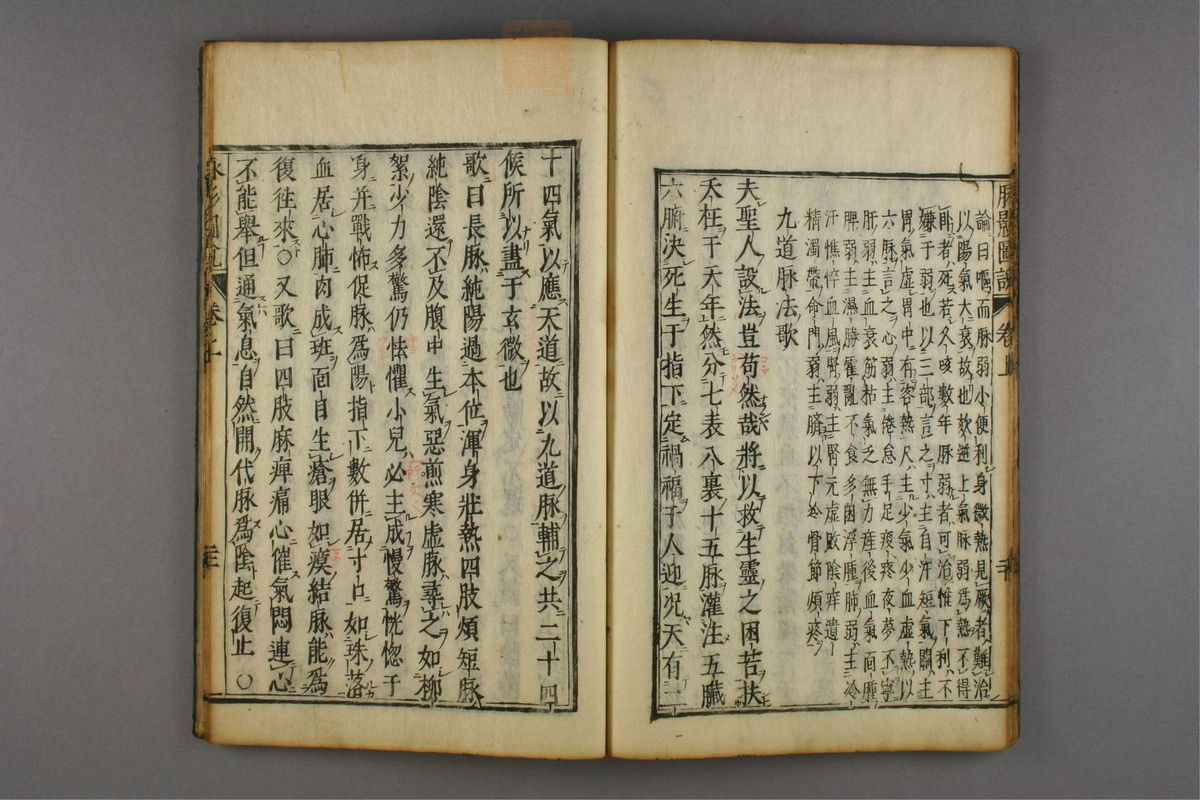 脉影圖說 卷上 二十
論曰嘔而脉弱小便利身微熱見厥者難治
以陽氣大衰故也欬逆上氣脉弱為熱不得
卧者死若久咳數年脉弱者可治惟下利不
嫌于弱也以三部言之寸主自汗短氣關主
胃氣虛胃中有客熱尺主少氣少血虛熱以
六脉言之心弱主倦怠手足痠疼夜夢不寧
肝弱主血衰筋枯氣乏無力産後血氣面腫
脾弱主濕勝霍亂不食多困浮腫肺弱主冷
汗憔悴血風腎弱主腎元虛敗陰痒遺
精濁帶命門弱主臍以下冷骨節煩疼
九道脉法歌
夫聖人設法豈苟然哉將以救生靈之困苦扶
夭枉于天年然分七表八裏十五脉灌注五臟
六腑決死生于指下定禍福于人迎况天有二
十四氣以應天道故以九道脉輔之共二十四
候所以盡于玄微也
歌曰長脉純陽過本位渾身壯熱四肢煩短脉
純陰還不及腹中生氣惡煎寒虛脉尋之如柳
絮少力多驚仍怯懼小兒必主成慢驚恍惚于
身并戰怖促脉為陽指下數併居寸口如珠落
血居心肺肉成班面自生瘡眼如瘼結脉能為
復徃來○又歌曰四肢麻痺痛心催氣悶連心
不能舉但通氣息自然開代脉為陰起復止○
卷上